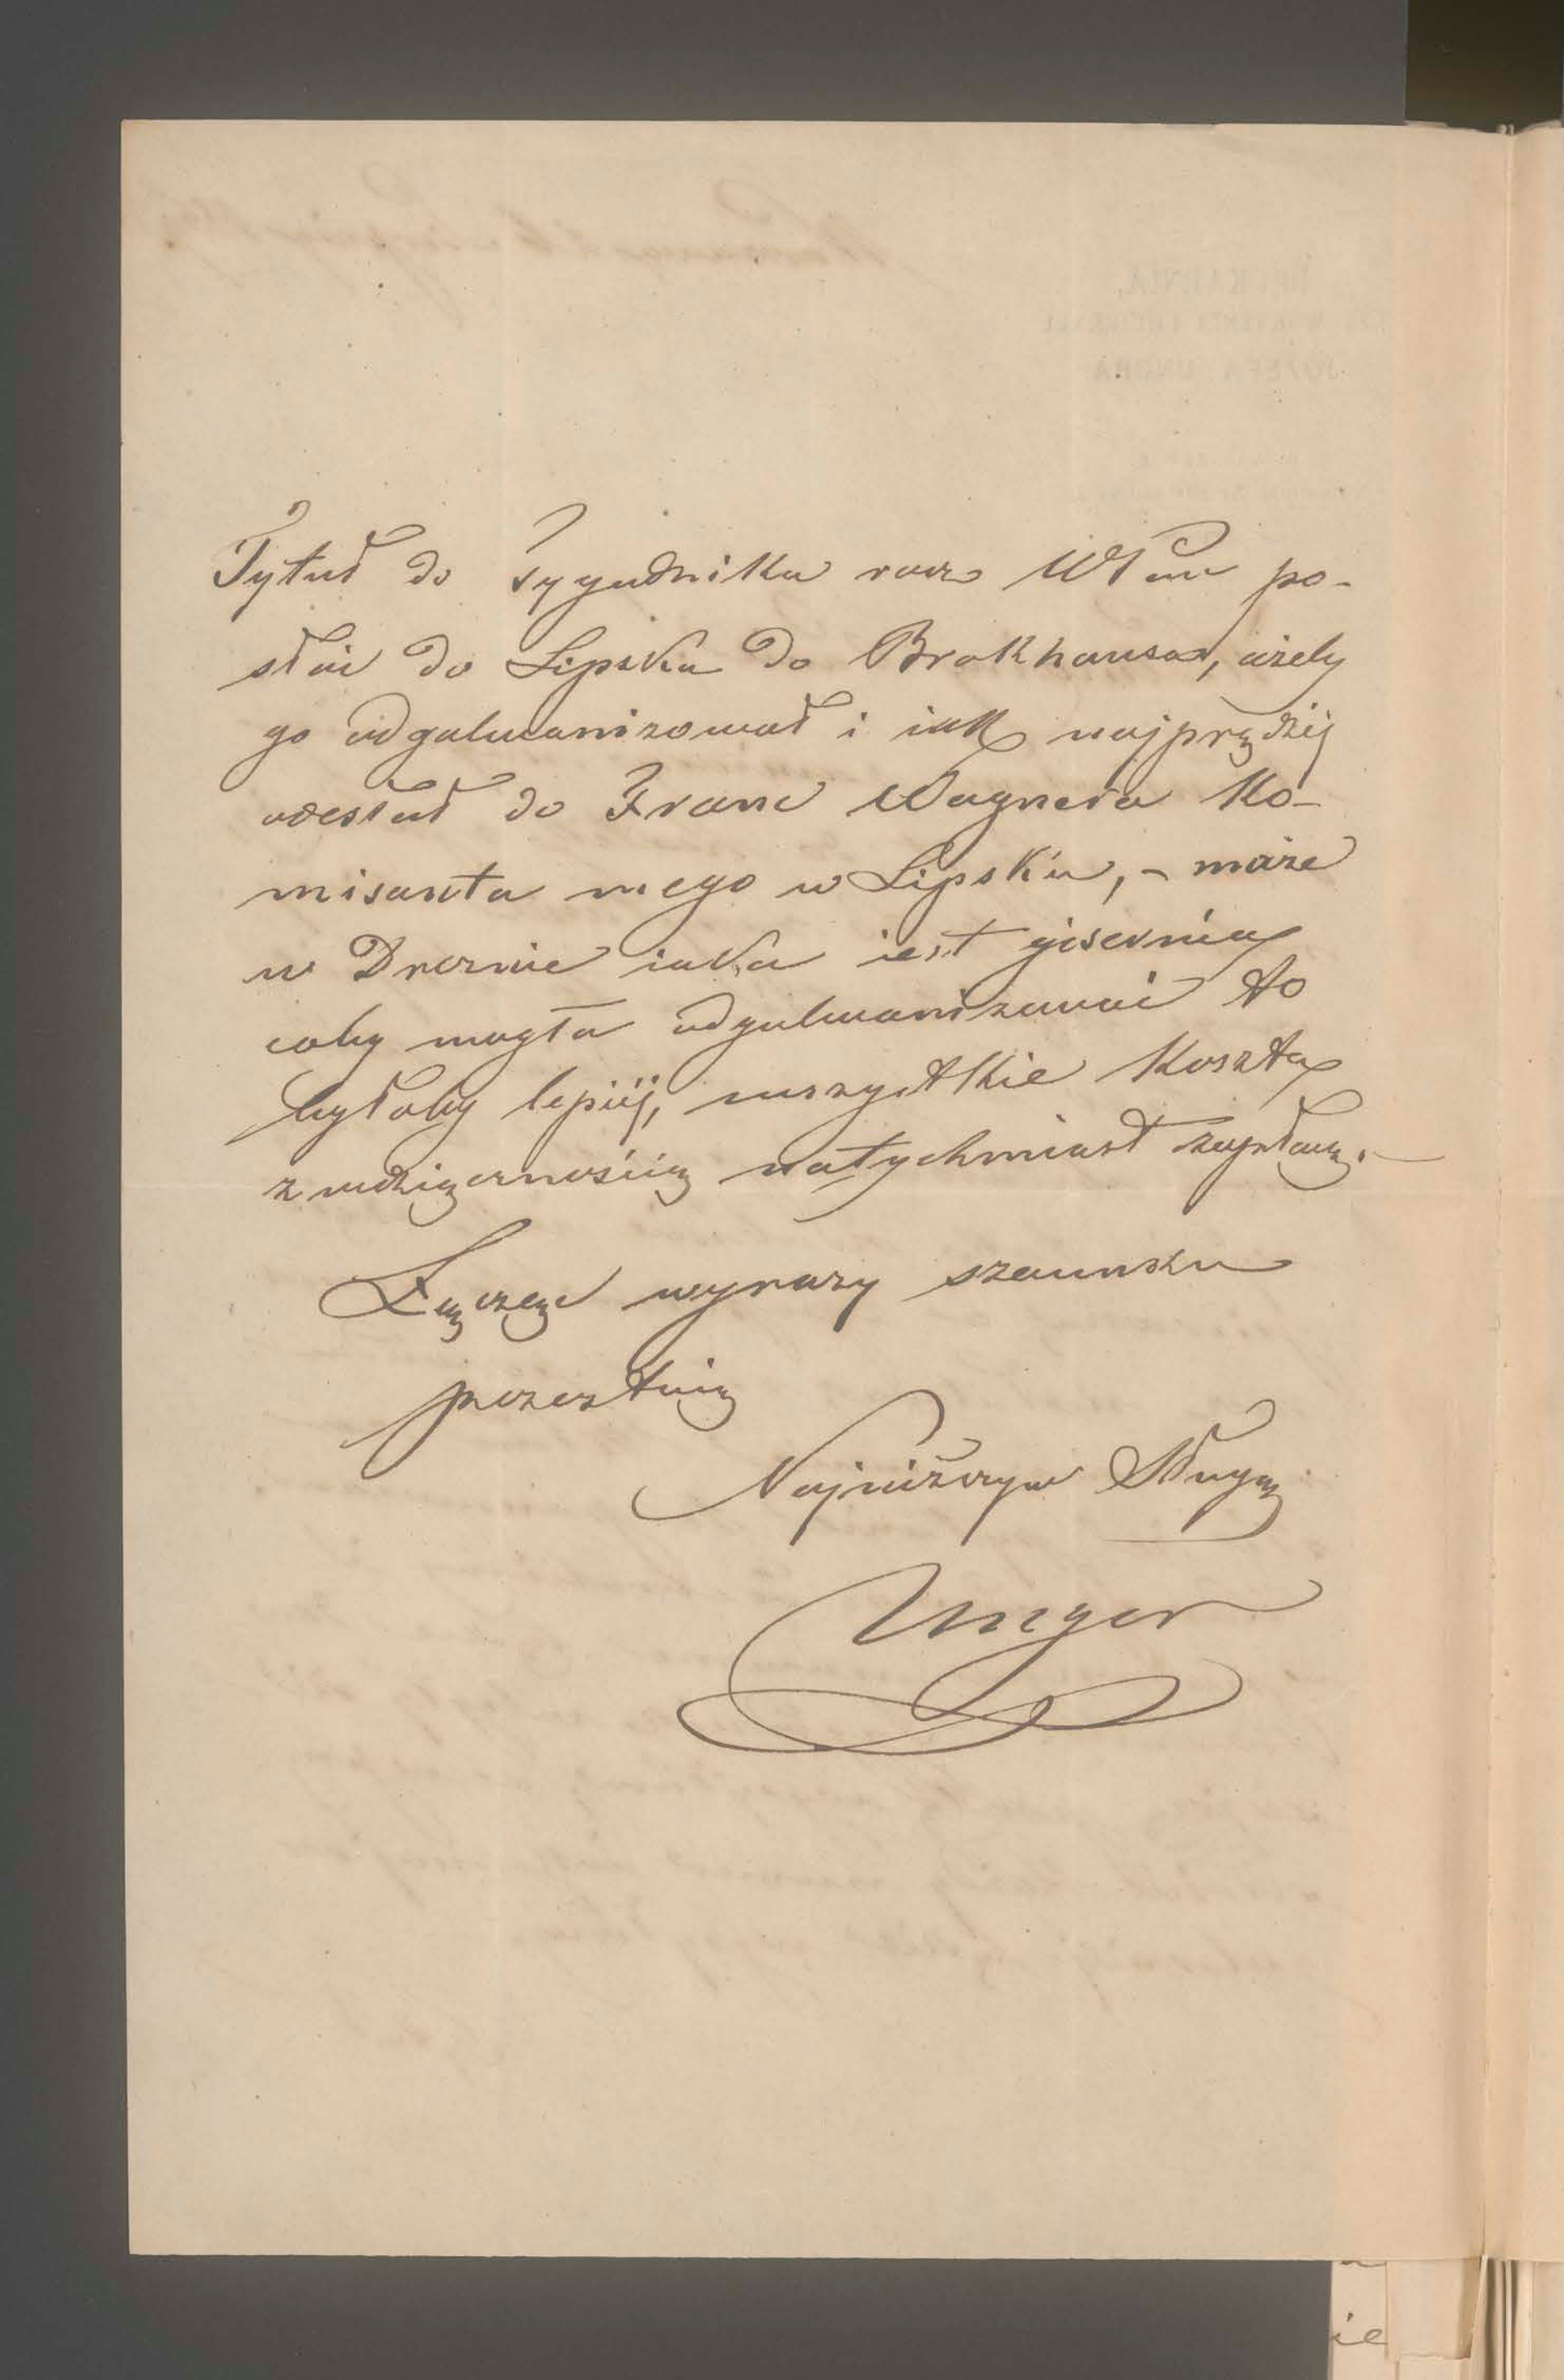 Tytuł do Tygodnika racz WPan po-
słać do Lipska do Brokhausa, ażeby
go odgalwanizował i jak najprędzej
odesłał do Franc Wagnera Ko-
misanta mego w Lipsku, – może
w Dreznie iaka iest gisernia
coby mogła odgalwanizować to
byłoby lepiej, wszystkie koszta
z wdzięcznością natychmiast zapłacę. –
Łączę wyrazy szacunku
pozostaię
Najniższym Sługą
Unger
ie